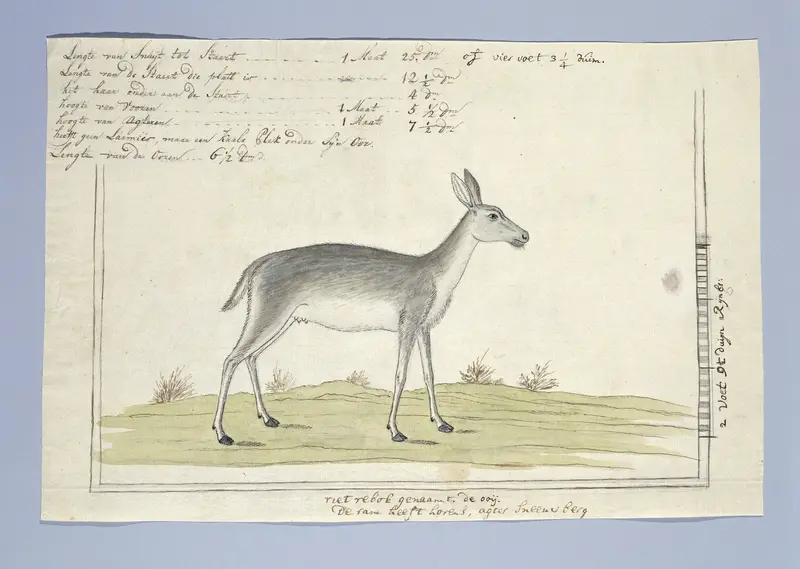 Lengte van Snuijt tot Staart 1 Maat 25 dm of vier voet 3 1/4 duim.
Lengte van de Staart die platt is 12 1/2 dm
het haar onder aan de Staart 4 dm
hoogte van Vooren 1 Maat 5 1/2 dm
hoogte van Agteren 1 Maat 7 1/2 dm
heeft geen Larmier, maar een Kaale Plek onder Sijn Oor.
Lengte van de Ooren 6 1/2 dm
2 Voet duijm Rijnl:
riet rebok genaamt, de ooij.
De ram heeft horens, agter Sneeuwberg